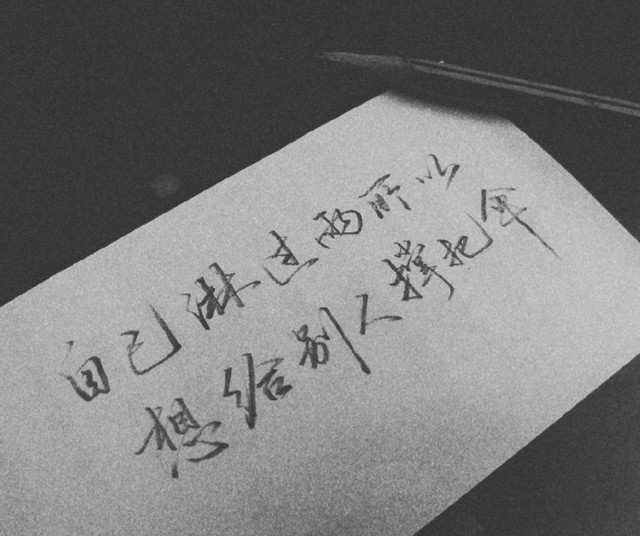 自己淋过雨所以
想给别人撑把伞